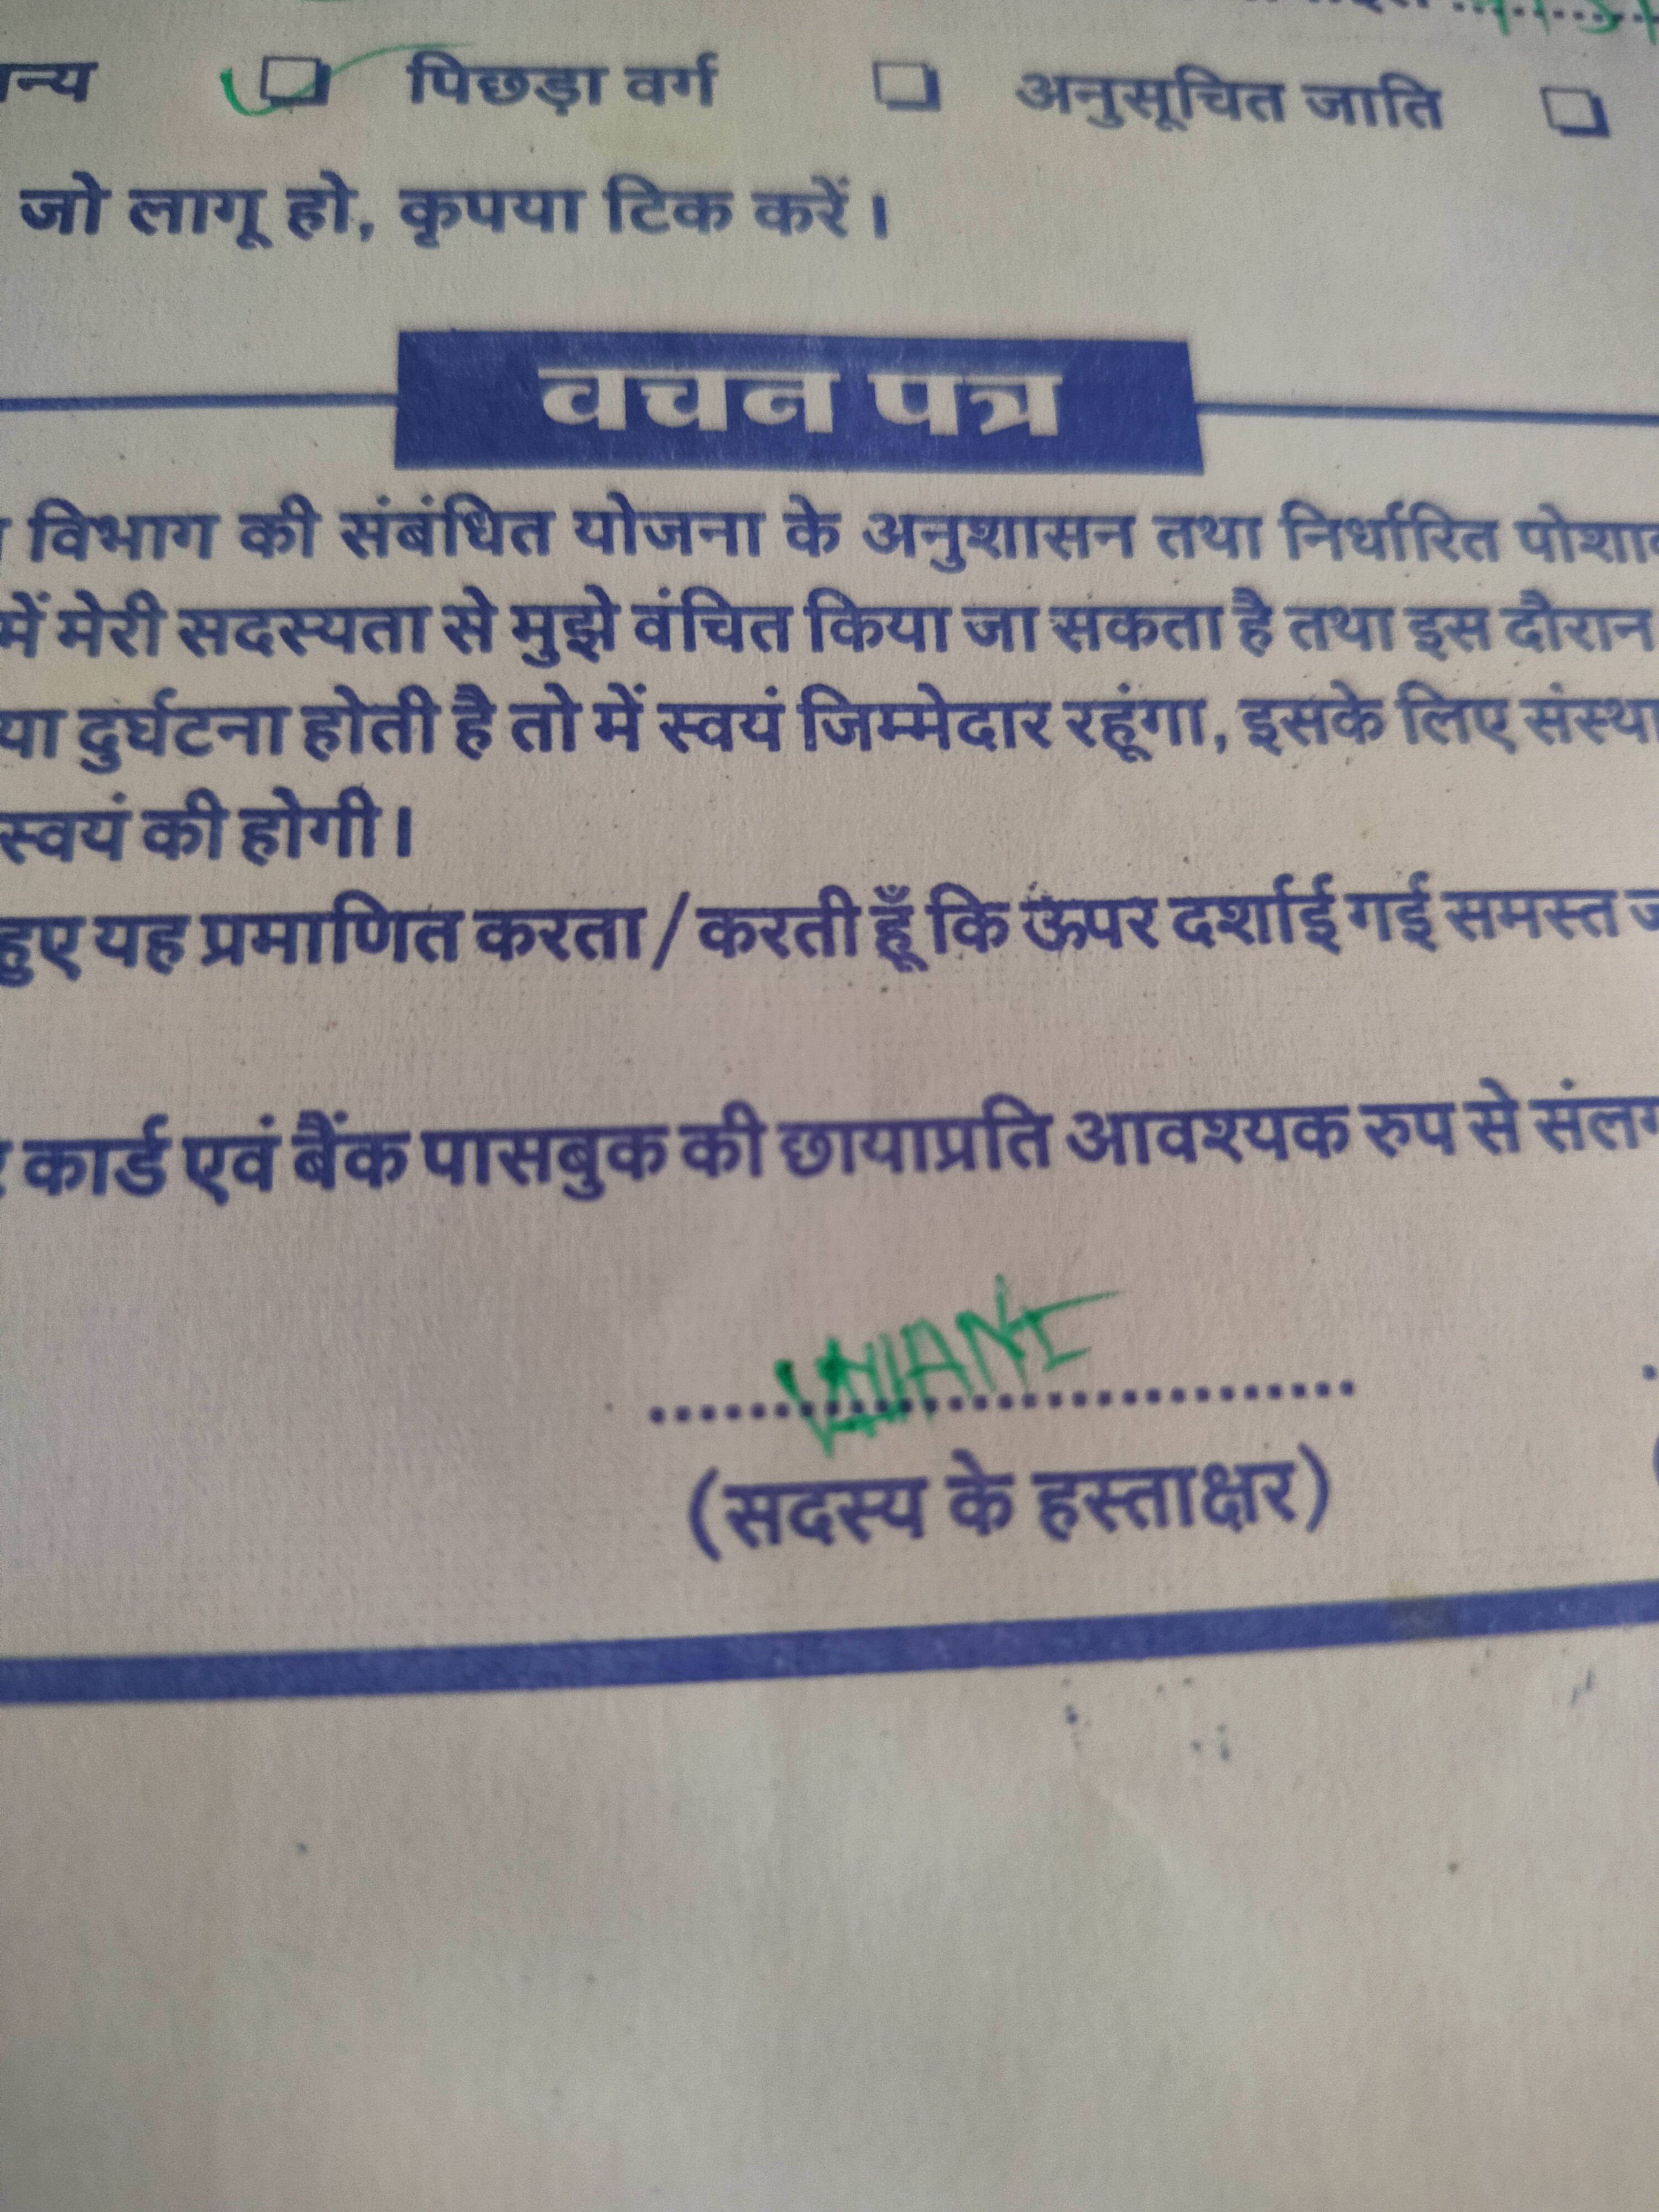 पिछड़ा वर्ग अनुसूचित जाति
जो लागू हो, कृपया टिक करें।
वचन पत्र
विभाग की संबंधित योजना के अनुशासन तथा निर्धारित
में मेरी सदस्यता से मुझे वंचित किया जा सकता है तथा इस दौरान
या दुर्घटना होती है तो में स्वयं जिम्मेदार रहूंगा, इसके लिए संस्था
स्वयं की होगी।
हुए यह प्रमाणित करता/करती हूँ कि ऊपर दर्शाई गई समस्त
कार्ड एवं बैंक पासबुक की छायाप्रति आवश्यक रुप से
(सदस्य के हस्ताक्षर)